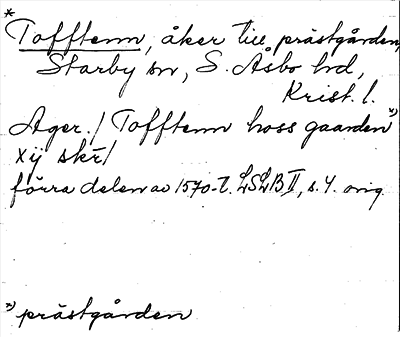 *
Tofftenn, åker till prästgården,
Starby sn, S. Åsbo hd,
Krist. l.
Ager. / Tofftenn hoss gaarden *)
xij skr̄ /
förra delen av 1570-t. LSLB II, s. 4. orig.
*) prästgården